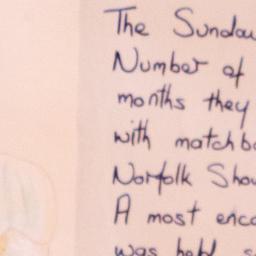 The Sunday
Number of
months they
with matchb
Norfolk Show
A most enco
was held s